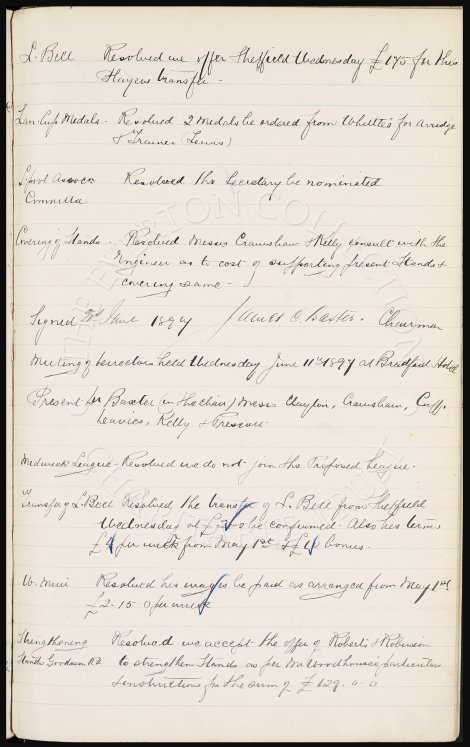 L. Bell Resolved we offer Sheffield Wednesday £175 for this
Players transfer.
Lan. Cup Medals. Resolved 2 Medals be ordered from Whittle's for Arridge
& Trainer Lewis)
L'pool Assocn Resolved the Secretary be nominated
Committee
Covering of Stands. Resolved Messrs Crawshaw & Kelly consult with the
Engineer as to cost of supporting present Stands &
covering same.
Signed 2nd June 1897 James C. Baxter. Chairman
Meeting of Directors held Wednesday June 1897 at Bradford Hotel
Present Dr Baxter (in the chair) Messrs Clayton, Crawshaw, Cuff,
Leavies, Kelly & Prescott
Midweek League. Resolved we do not join the Proposed League.
Transfer of L. Bell Resolved the transfer of L. Bell from Sheffield
Wednesday at be confirmed. Also his terms
£4 per week from May 1st & bonus.
W. Muir Resolved his wages be paid as arranged from May 1st
£2-15-0 per week
Strengthening Resolved we accept the offer of Roberts & Robinson
Stands Goodison Rd to strengthen Stands as per Mr Woodhouse's particulars
& instructions for the sum of £129.0.0
THE EVERTON COLLECTION